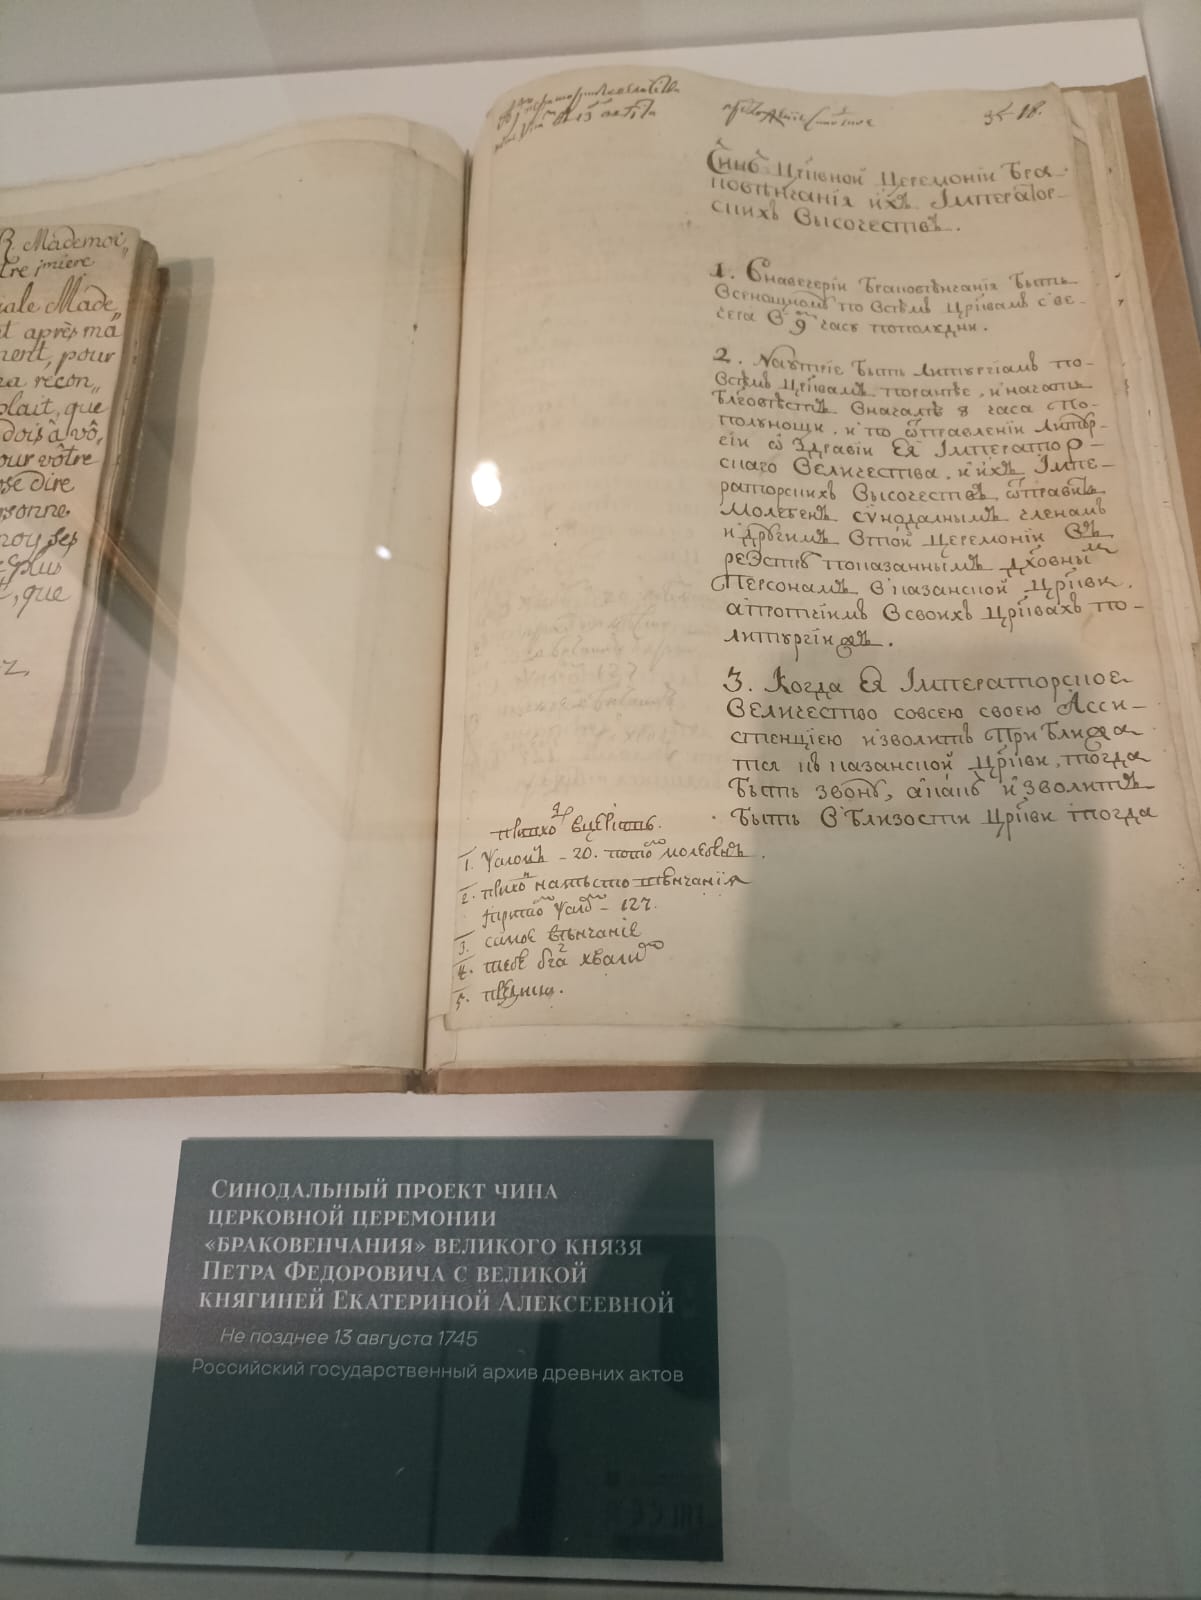 R. Mademoi„
tre imiere
iale Made„
t après ma
ment, pour
ra récon„
plait, que
dois à vô„
our vôtre
ose dire
rsonne
noy ses
plus
t, que
z,
35 18.
Чинъ црквной церемонїи бра-
ковѣнчанїя ихъ Імператор-
скихъ высочествъ.
1. Внавечерїи браковѣнчанїя быть
всенощному по всѣмъ црквамъ с ве-
чера в 9 часу пополудни.
2. Наутрїе быть литургїамъ по
всѣмъ црквамъ поранѣе, и начать
блговѣстъ в началѣ 8 часа с по-
полунощи, и по ѿправленїи литур-
гїи ѡ здравїи Ея Імператор-
скаго величества, и ихъ Імпе-
раторскихъ высочествъ, ѿправить
молебенъ сѵнодалнымъ членамъ
и другимъ в той церемонїи въ
реэстрѣ показаннымъ дховнымъ
персонамъ в казанской цркви,
а протчїимъ в своихъ црквахъ по
литургїяхъ.
3. Когда Ея Імператорское
величество со всею своею Асси-
стенцїею изволитъ приближа-
тся къ казанской цркви, тогда
быть звону, а какъ изволитъ
быть в близости цркви тогда
1. Ѱаломъ - 20. потомъ молебнъ.
2. приход на мѣсто вѣнчанїя
ѱалом - 127.
3. самое вѣнчанїе
4. тебе бга хвалим
5.
Синодальный проект чина
церковной церемонии
«браковенчания» великого князя
Петра Федоровича с великой
княгиней Екатериной Алексеевной
Не позднее 13 августа 1745
Российский государственный архив древних актов